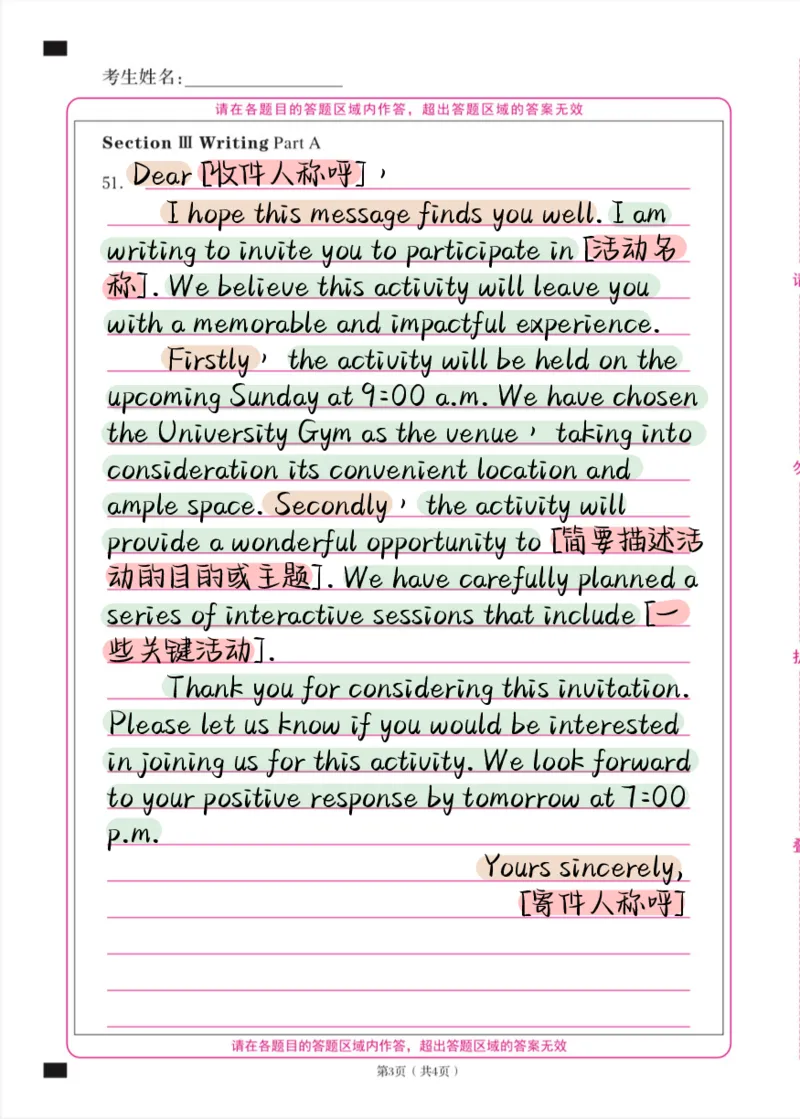 考生姓名：
请在各题目的答题区域内作答，超出答题区域的答案无效
Section Ⅲ Writing Part A
51. Dear [收件人称呼]，
I hope this message finds you well. I am
writing to invite you to participate in [活动名
称]. We believe this activity will leave you
with a memorable and impactful experience.
Firstly， the activity will be held on the
upcoming Sunday at 9:00 a.m. We have chosen
the University Gym as the venue， taking into
consideration its convenient location and
ample space. Secondly， the activity will
provide a wonderful opportunity to [简要描述活
动的目的或主题]. We have carefully planned a
series of interactive sessions that include [一
些关键活动].
Thank you for considering this invitation.
Please let us know if you would be interested
in joining us for this activity. We look forward
to your positive response by tomorrow at 7:00
p.m.
Yours sincerely,
[寄件人称呼]
请在各题目的答题区域内作答，超出答题区域的答案无效
第3页（共4页）